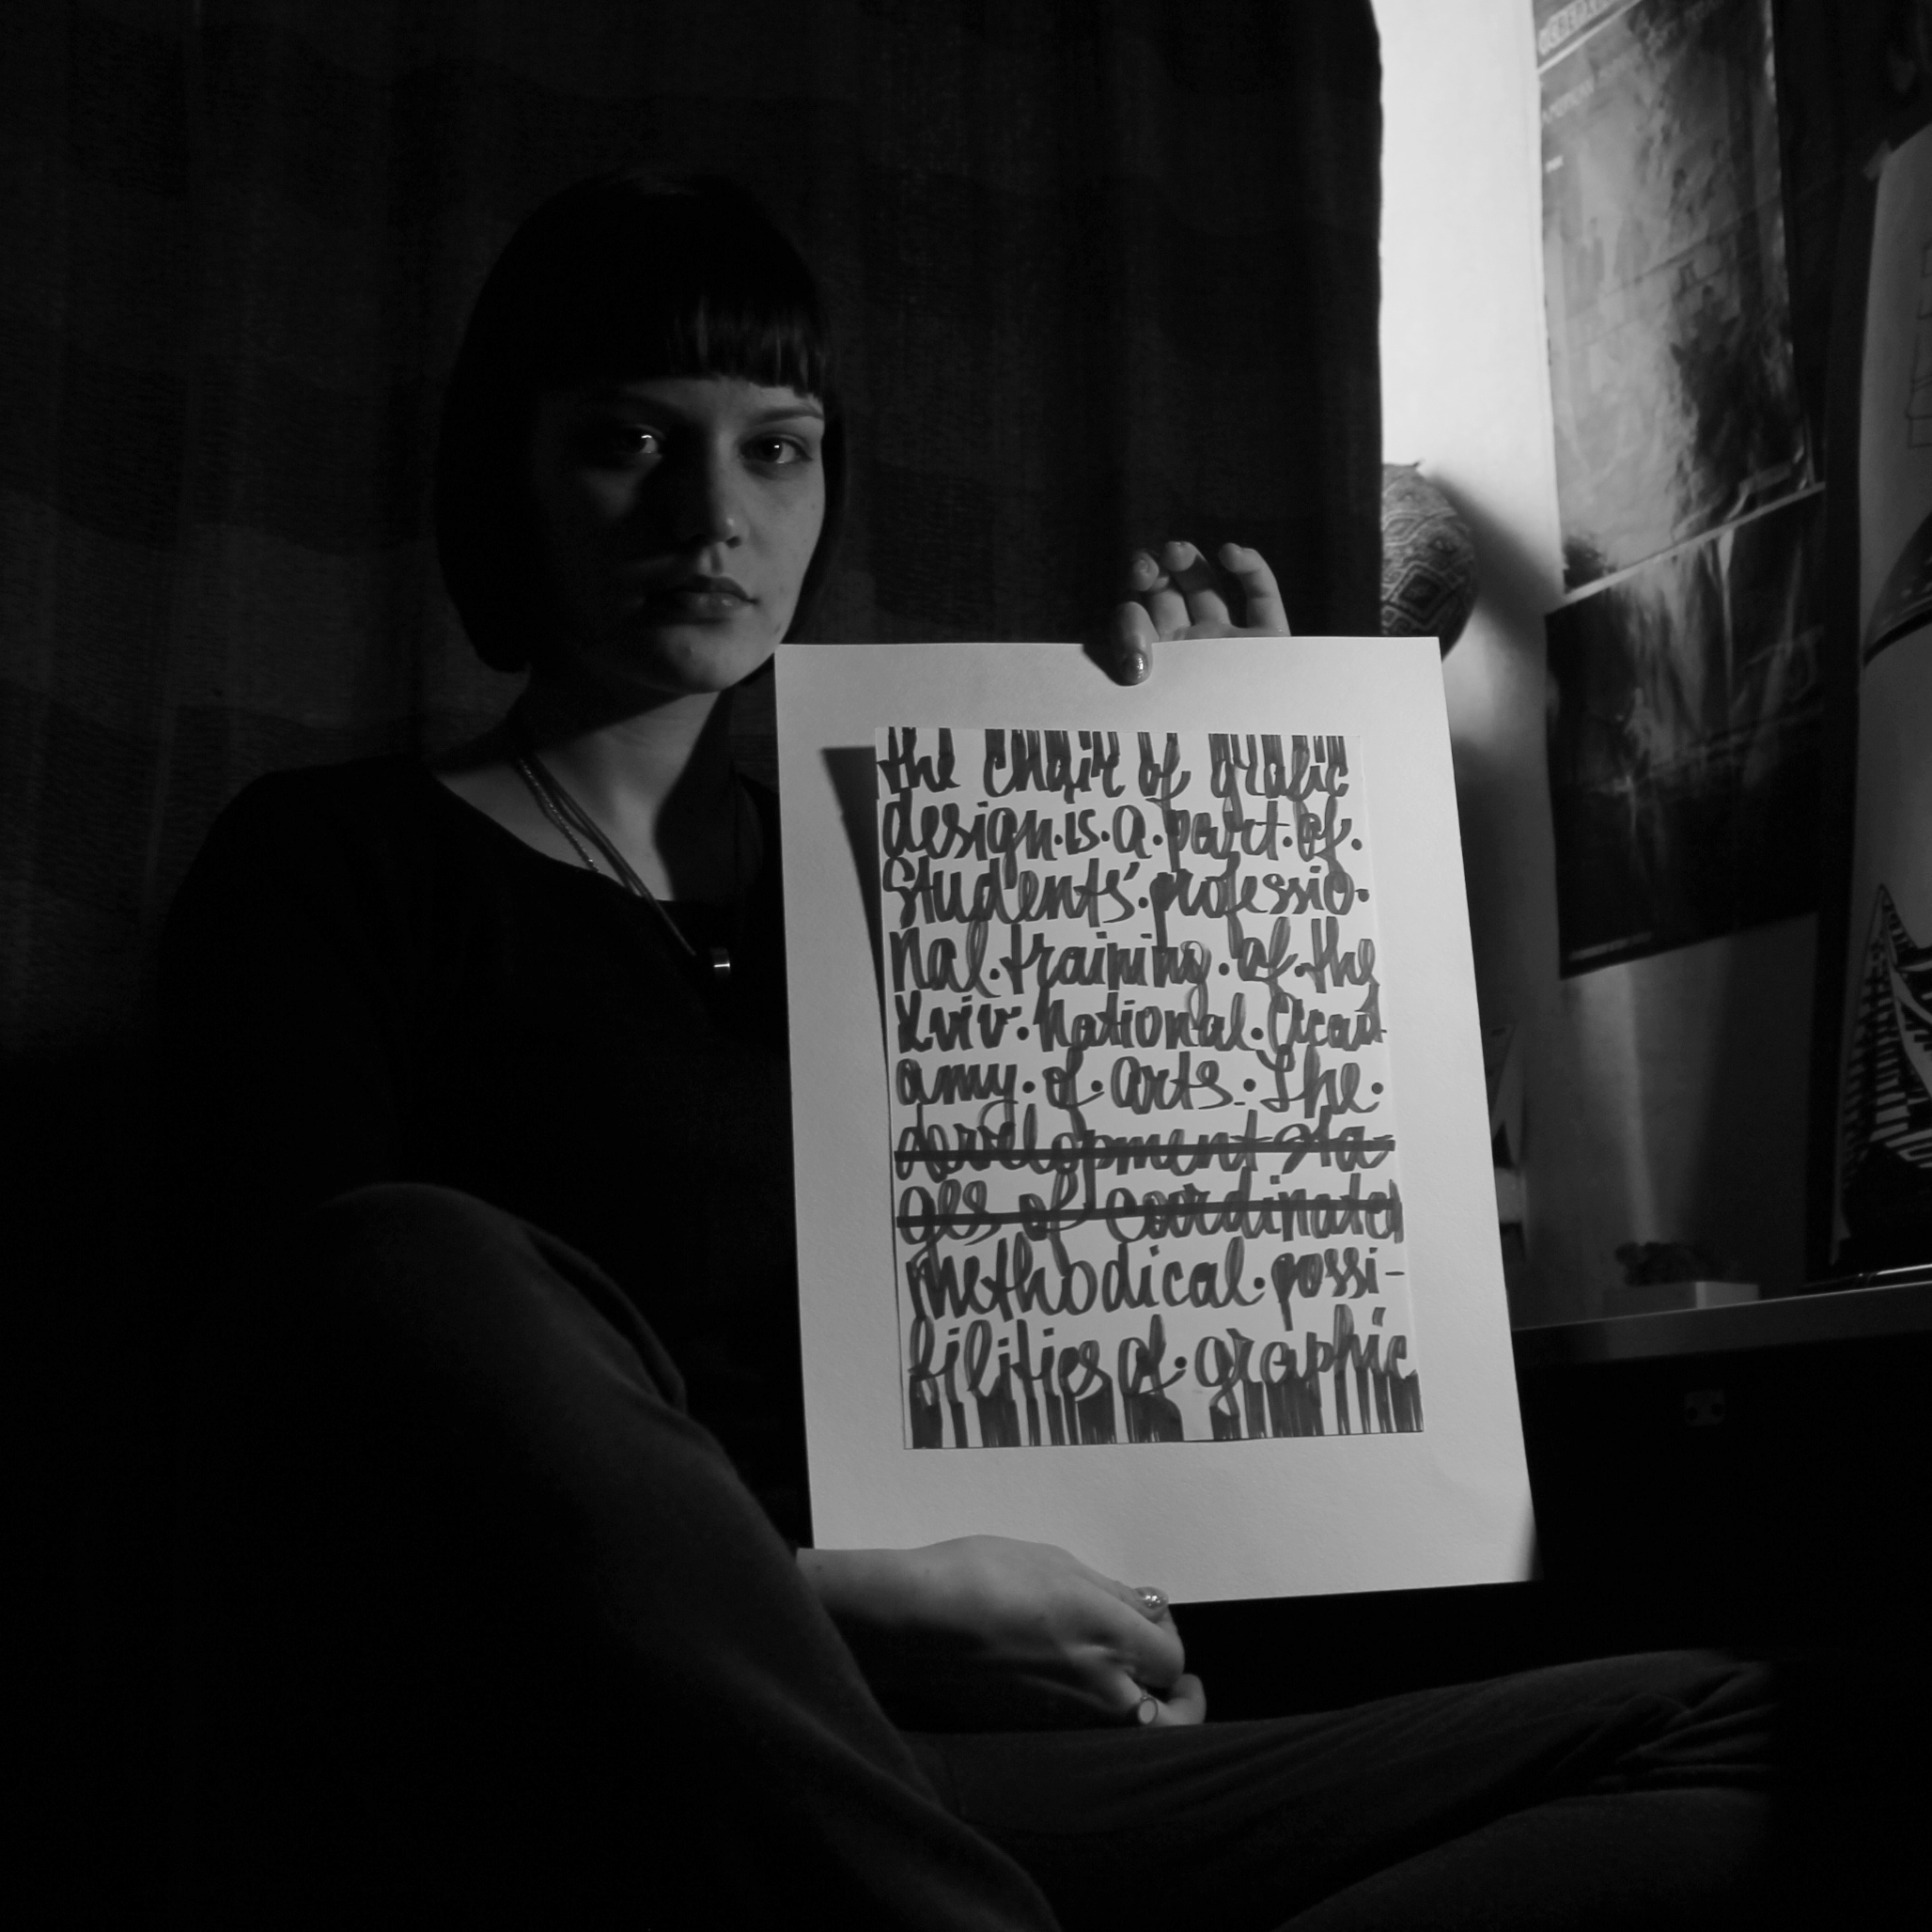 the chair of grafic
design·is·a·part·of·
students'·professio·
nal·training·of·the
Lviv·National·Acad
amy·of·arts.·The·
development sta-
ges of coordinated
methodical·possi-
bilities of·graphic